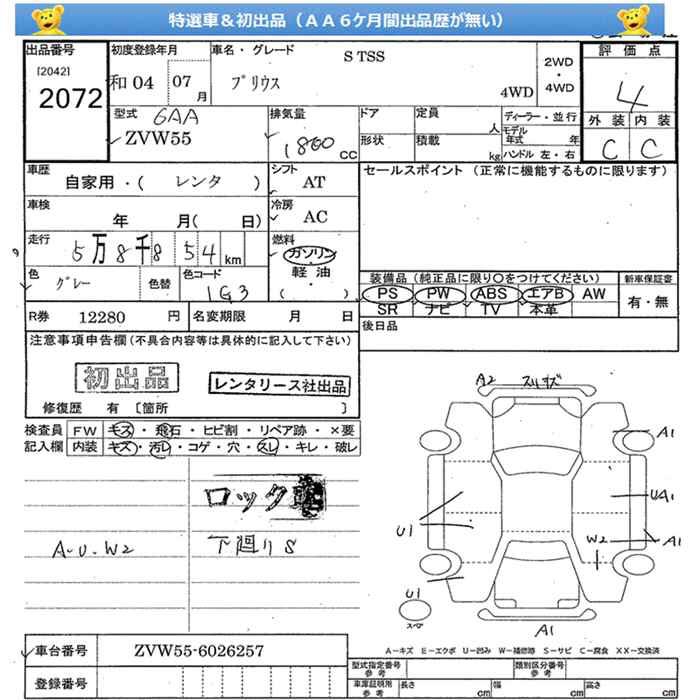 特選車＆初出品（ＡＡ６ケ月間出品歴が無い）
出品番号
[2042]
2072
初度登録年月
和04 07 月
車名・グレード
S TSS
プリウス
4WD
2WD
・
4WD
評価点
4
外装 内装
C C
型式 6AA
ZVW55
排気量
1800 CC
ドア
形状
定員
人
積載
kg
ディーラー・並行
モデル年式 年
ハンドル 左・右
車歴
自家用・( レンタ )
シフト
AT
セールスポイント（正常に機能するものに限ります）
車検
年 月( 日)
冷房
AC
走行
5万8千854km
燃料
ガソリン
軽油
( ・ )
色
グレー
色替
色コード
1G3
装備品（純正品に限り○をつけてください）
PS PW ABS エアB AW
SR ナビ TV 本革
新車保証書
有・無
R券 12280 円
名変期限 月 日
後日品
注意事項申告欄(不具合内容等は具体的に記入して下さい)
初出品
レンタリース社出品
修復歴 有 〔箇所 〕
検査員
記入欄
FW キズ・飛石・ヒビ割・リペア跡・×要
内装 キズ・汚レ・コゲ・穴・スレ・キレ・破レ
ロック
A-U.W2
下廻りS
A2 スリキズ
A1
UA1
U1
W2
A1
U1
スペア
A1
車台番号 ZVW55-6026257
登録番号
A−キズ E−エクボ U−凹み W−補修跡 S−サビ C−腐食 XX−交換済
型式指定番号
参考
類別区分番号
参考
車庫証明用
参考
長さ cm
幅 cm
高さ cm